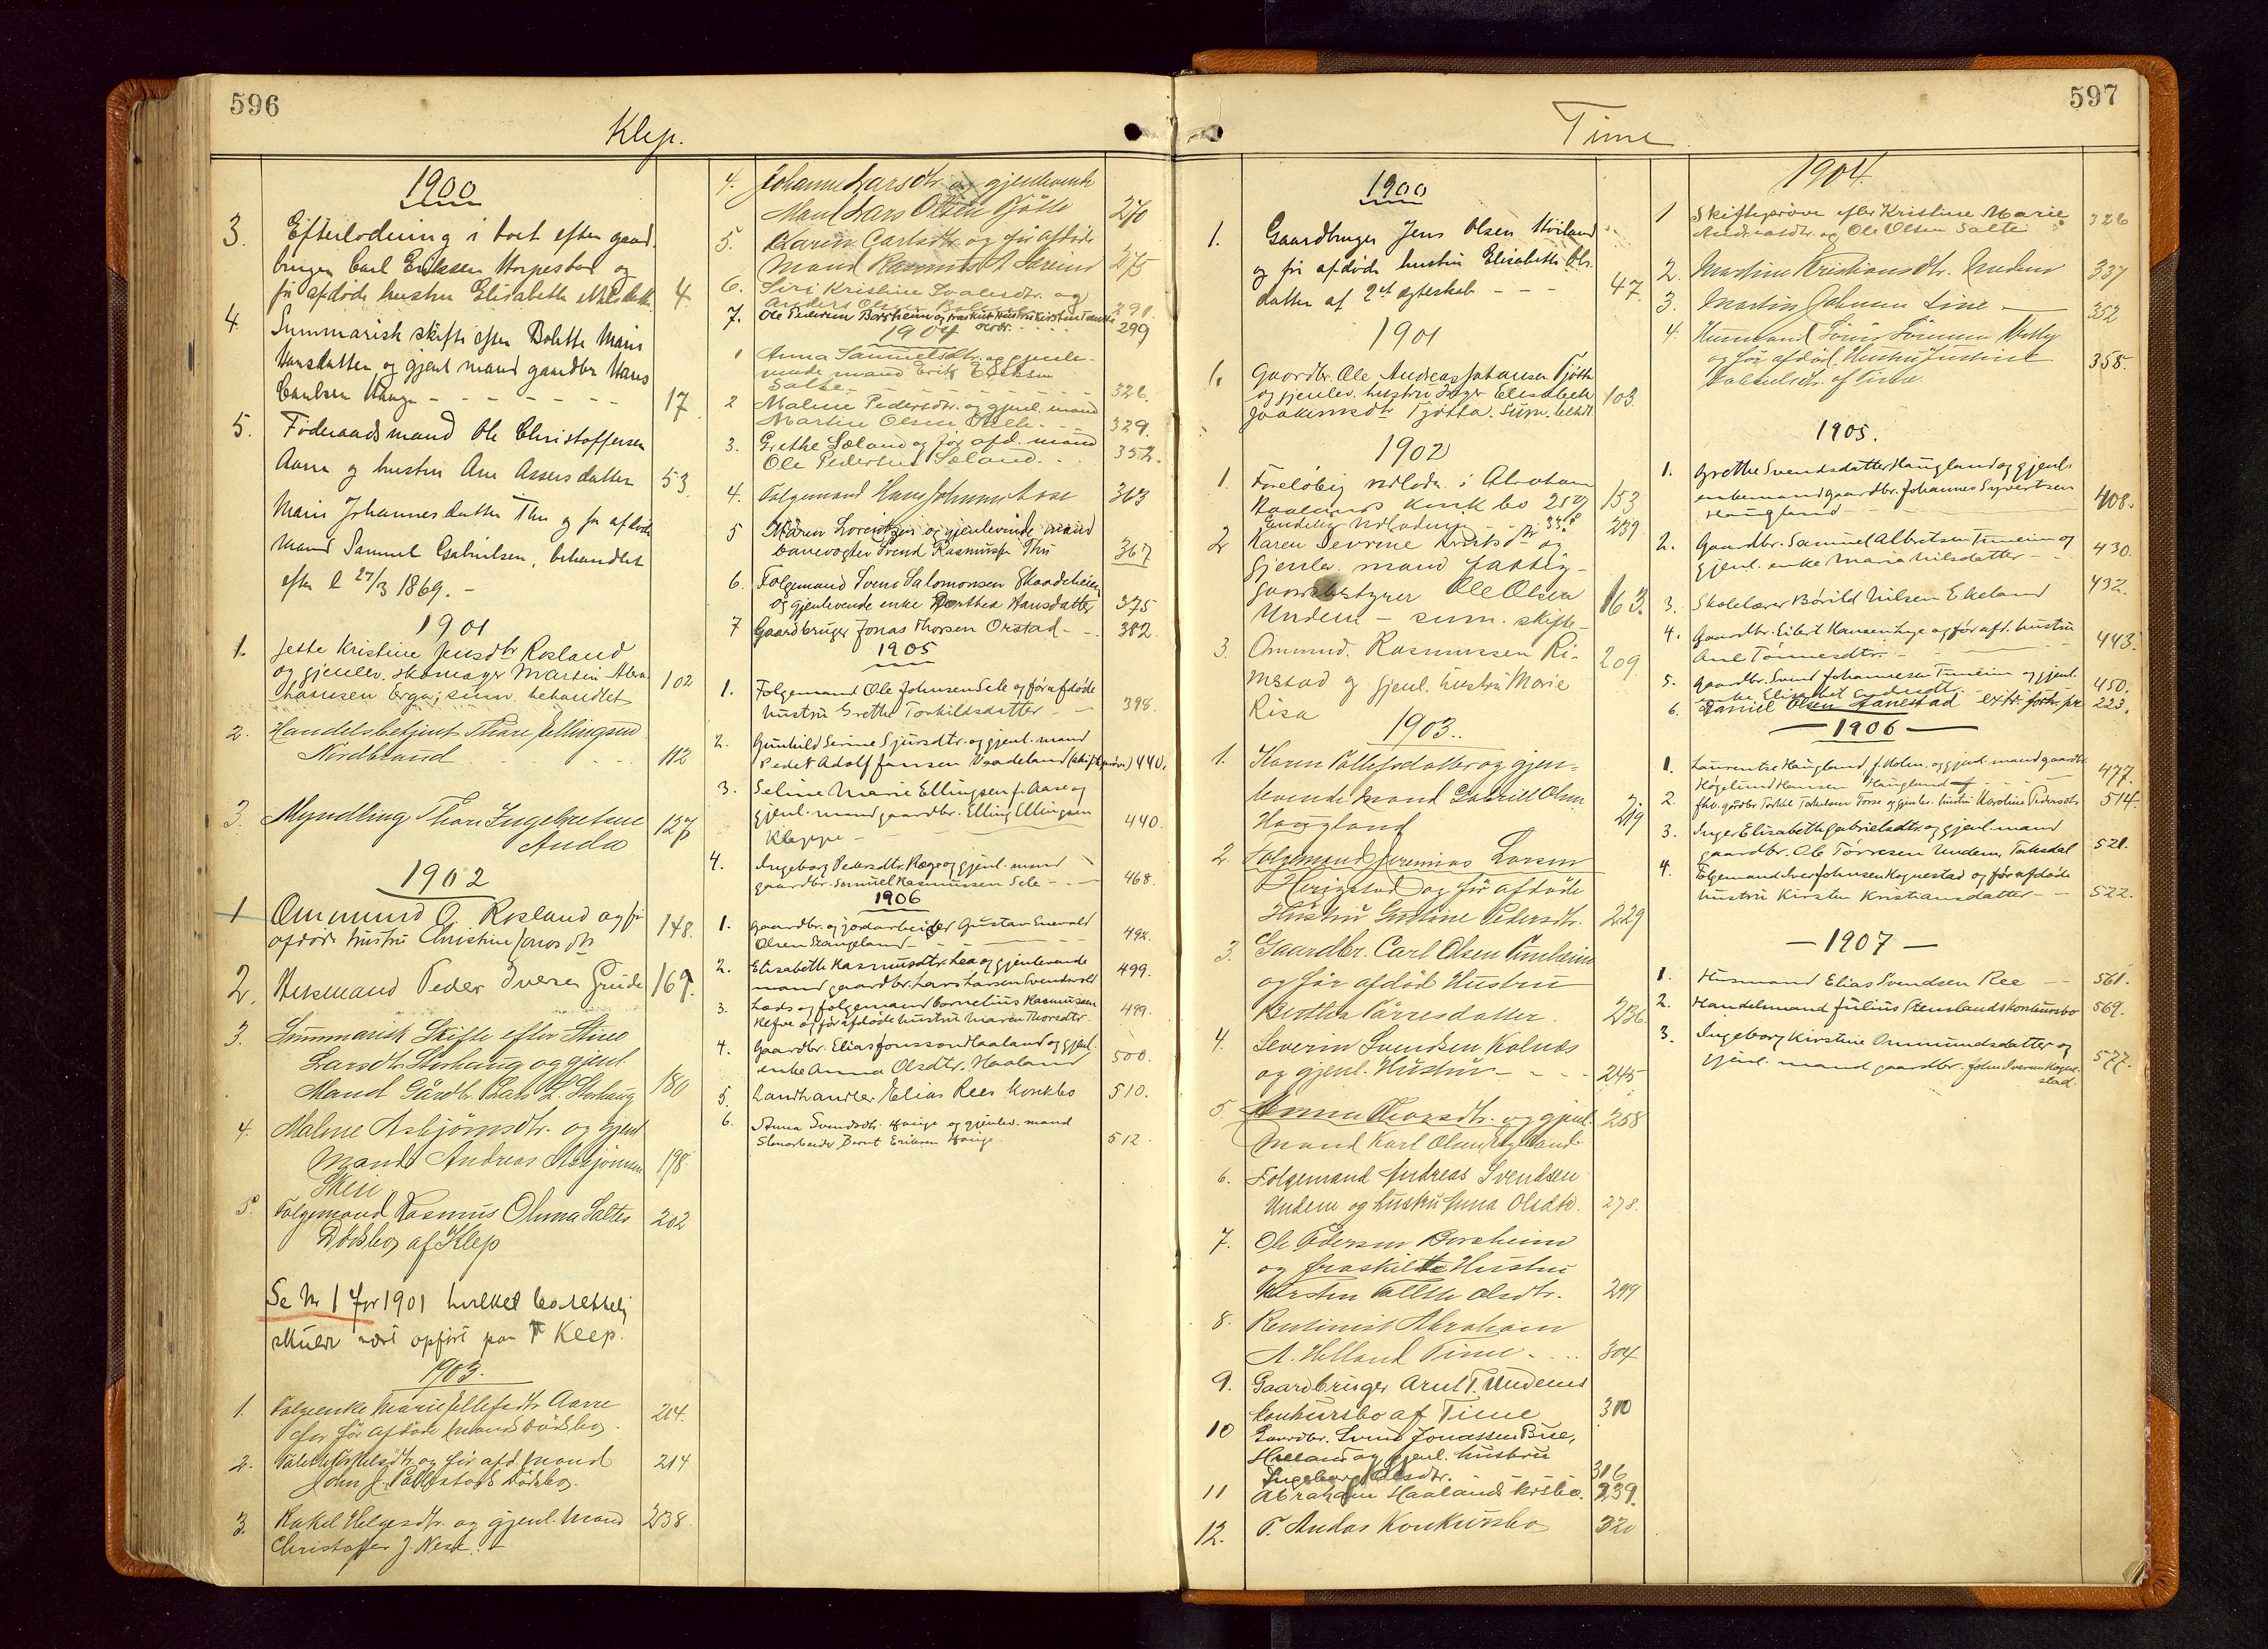 596
Klep.
1900
3. Efterlodning i boet efter gaard-
bruger Carl Eriksen Horpestad og
før afdøde hustru Elisabeth Nilsdatter 4.
4. Summarisk skifte efter Bolette Marie
Hansdatter og gjenl mand gaardbr Hans
Carlsen Hauge - - - - - 17.
5. Føderaadsmand Ole Christoffersen
Aarre og hustru Ane Assersdatter 53.
Maris Johannesdatter Thu og før afdøde
Mand Samuel Gabrielsen, behandlet
efter l 27/3 1869. -
1901
1. Jette Kristine Jensdtr Rosland
og gjenlev. skomager Martin Abra
hamsen Erga; sum. behandlet 102
2. Handelsbetjent Thore Ellingsen
Nordbraud 112
3. Myndling Thore Ingebretsen
Anda 127
1902
1 Ommund O. Rosland og før
afdøde hustru Christine Jonasdtr 148.
2. Husmand Peder Iversen Grude 169.
3. Summarisk Skifte efter Stine
Larsdtr Storhaug og gjenl
Mand Gårdbr. Lars L. Storhaug 180
4. Malene Asbjørnsdtr. og gjenl
Mand Andreas Asbjørnsen
Skeie 198.
5. Folgemand Rasmus Olsma Saltes
Dødsbo af Klep 202
Se Nr 1 for 1901 hvilket bo rettelig
skulde vært opført paa Klep.
1903.
1. Folgeenke Marie Ellefsdtr Aarre
før afdøde Mands Dødsbo. 214.
2. og før afd. mand
John J. Pollestads Dødsbo. 214
3. Rakel Helgesdtr. og gjenl. Mand
Christoffer J. Nese. 238.
4. Johanne Larsdtr. og gjenlevende
Mand Lars Olsen Tjøtte 270
5. Karen Carlsdtr. og før afdøde
Mand Rasmus A Særeim 275
6. Siri Kristine Svalesdtr. og
Anders Olsen 291.
7. Ole Pedersen Borsheim og fraskilt Hustru Kirsten Tollette
Olsdtr. 299
1904
1 Anna Samuelsdtr. og gjenle-
vende mand Erik Eriksen
Salte - - - 326.
2 Malene Pedersdtr. og gjenl. mand
Martin Olsen 329.
3. Grethe Sæland og før afd. mand
Ole Pedersen Sæland. 352.
4. Folgemand Hans Johnsen Aase 363
5 Maren Lorentzen og gjenlevende mand
banevogter Svend Rasmussen Thu 367
6. Folgemand Svend Salomonsen Skaadeheien
og gjenlevende enke Dorthea Hansdatter 375
7 Gaardbruger Jonas Thorsen Orstad - - 382.
1905
1. Folgemand Ole Johnsen Sele og før afdøde
hustru Grethe Torkildsdatter - - 398.
2. Gunhild Serine Sjursdtr. og gjenl. mand
Peder Adolf Jansen Vaadeland (skifteprøve) 440.
3. Seline Marie Ellingsen f. Aase og
gjenl. mand gaardbr. Elling Ellingsen
Kleppe - 440.
4. Ingeborg Pedersdtr. Roge og gjenl. mand
gaardbr. Samuel Rasmussen Sele - - 468.
1906
1. Gaardbr. og jordarbeider Gustav Enevald
Olsen Stangeland - - 492.
2. Elisabeth Rasmusdtr. Lea og gjenlevende
mand gaardbr. Lars Larsen Svendsvold 499.
3. Lods og folgemand Cornelius Rasmussen
Refve og før afdøde hustru Maren Thorsdtr. 499.
4. Gaardbr. Elias Jonsson Haaland og gjenl.
enke Anna Olsdtr. Haaland 500.
5. Landhandler Elias Rees Konkbo 510.
6. Anna Svendsdtr. Hauge og gjenlev. mand
Stenarbeider Bernt Eriksen Hauge. 512.
597
Time
1900
1. Gaardbruger Jens Olsen Høiland
og før afdøde hustru Elisabeth Ols-
datter af 2et egteskab - - - 47.
1901
1. Gaardbr. Ole Andreas Johansen Tjøtta
og gjenlev. hustru Inger Elisabeth
Joakimsdtr Tjøtta. Sum. behdl 103
1902
1. Foreløbig udlodn. i Abraham
Haalands konk bo 25% 153
Endelig Udlodning - - 239
2 Karen Severine Knutsdtr og
gjenlev. mand fattig-
gaardsbestyrer Ole Olsen
Undem - sum. skifte - 163.
3. Ommund Rasmussen Ri-
mestad og gjenl. hustru Marie
Risa 209
1903.
1. Karen Tollefsdatter og gjen-
levende Mand Gabriel Olsen
Haugland 219
2. Folgemand Jeremias Larsen
Herigstad og før afdøde
Hustru Gurine Pedersdtr. 229
3. Gaardbr. Carl Olsen Tunheim
og før afdød Hustru
Berthe Tørresdatter. 236
4. Severin Svendsen Kalnæs
og gjenl. Hustru - - - 245
5. Anna Thorsdtr. og gjenl. 258
Mand Karl Olsen
6. Folgemand Andreas Svendsen
Undem og hustru Anna Olsdtr. 278.
7. Ole Pedersen Borsheim
og fraskilte Hustru
Kirsten Tollette Olsdtr. 299
8. Rentenist Abraham
A. Helland Time - ... 304
9. Gaardbruger Arnt T. Undems
konkursbo af Time 310
10 Gaardbr. Svend Jonassen Bue,
Høiland og gjenl. hustru
Ingeborg Olsdtr. 316
11 Abraham Haalands krsbo. 239.
12. T. Andas Konkursbo 320
1904.
1 Skifteprøve efter Kristine Marie
Andreasdtr. og Ole Olsen Salte 326
2. Martine Kristiansdtr. Undem 337
3. Martin Johnsen Line - 352
4. Husmand Sørensen
og før afdød Hustru Justine
af Time 358.
1905.
1. Grethe Svendsdatter Haugland og gjenl.
enkemand gaardbr. Johannes Syvertsen
Haugland - 408.
2. Gaardbr. Samuel Albertsen Tunheim og
gjenl. enke Maria Nilsdatter - - 430.
3. Skolelærer Børild Nilsen Ekeland 432.
4. Gaardbr. Eilert Hansen Lye og før afd. hustru
Ane Tønnesdtr. - 443.
5. Gaardbr. Svend Johannesen Tunheim og gjenl.
enke Elisabet 450.
6. Daniel Olsen Hanestad 223.
- 1906 -
1. Laurentse Haugland f. Holen, og gjenl. mand gaardbr
Høgelund Hansen Haugland 477.
2. gårdbr Torkel Takelsen Fosse og gjenlev. hustru Karoline Pedersdtr 514.
3. Inger Elisabeth Gabrielsdtr. og gjenl. mand
gaardbr. Ole Tørresen Undem, Taksdal 521.
4. Folgemand Iver Johnsen Hognestad og før afdøde
hustru Kirsten Kristiansdatter - - 522.
- 1907 -
1. Husmand Elias Svendsen Ree - - 561.
2. Handelsmand Julius Stenslands konkursbo 569.
3. Ingeborg Kirstine Ommundsdatter og
gjenl. mand gaardbr. John Iversen Hogne-
stad. 577.